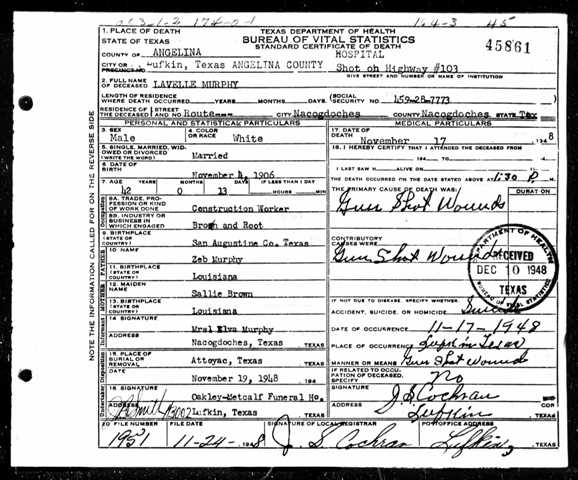 1. PLACE OF DEATH
STATE OF TEXAS
TEXAS DEPARTMENT OF HEALTH
BUREAU OF VITAL STATISTICS
STANDARD CERTIFICATE OF DEATH
45861
COUNTY OF ANGELINA
HOSPITAL
CITY OR PRECINCT NO. Lufkin, Texas ANGELINA COUNTY Shot on Highway #103
GIVE STREET AND NUMBER OR NAME OF INSTITUTION
2. FULL NAME OF DECEASED LAVELLE MURPHY
LENGTH OF RESIDENCE WHERE DEATH OCCURRED YEARS MONTHS DAYS
SOCIAL SECURITY NO. 459-28-7773
RESIDENCE OF THE DECEASED STREET AND NO. Route CITY Nacogdoches COUNTY Nacogdoches STATE Tex
PERSONAL AND STATISTICAL PARTICULARS
MEDICAL PARTICULARS
3. SEX Male
4. COLOR OR RACE White
17. DATE OF DEATH November 17 1948
5. SINGLE, MARRIED, WIDOWED OR DIVORCED (WRITE THE WORD) Married
18. I HEREBY CERTIFY THAT I ATTENDED THE DECEASED FROM
194 TO 194
6. DATE OF BIRTH November 4, 1906
I LAST SAW H ALIVE ON 194
THE DEATH OCCURRED ON THE DATE STATED ABOVE AT 1:30 P M.
7. AGE YEARS MONTHS DAYS IF LESS THAN 1 DAY
42 0 13 HOURS MIN
THE PRIMARY CAUSE OF DEATH WAS: DURATION
Gun Shot Wounds
8A. TRADE, PROFESSION OR KIND OF WORK DONE Construction Worker
8B. INDUSTRY OR BUSINESS IN WHICH ENGAGED Brown and Root
9. BIRTHPLACE (STATE OR COUNTRY) San Augustine Co. Texas
CONTRIBUTORY CAUSES WERE:
Gun Shot Wounds
10. NAME Zeb Murphy
11. BIRTHPLACE (STATE OR COUNTRY) Louisiana
DEPARTMENT OF HEALTH
RECEIVED
DEC 10 1948
TEXAS
BUREAU OF VITAL STATISTICS
12. MAIDEN NAME Sallie Brown
13. BIRTHPLACE (STATE OR COUNTRY) Louisiana
IF NOT DUE TO DISEASE, SPECIFY WHETHER:
ACCIDENT, SUICIDE, OR HOMICIDE
14. SIGNATURE Mrs. Elva Murphy
DATE OF OCCURRENCE 11-17-1948
ADDRESS Nacogdoches, Texas TEXAS
PLACE OF OCCURRENCE Lufkin Texas
15. PLACE OF BURIAL OR REMOVAL Attoyac, Texas TEXAS
MANNER OR MEANS Gun Shot Wounds
DATE November 19, 1948 194
IF RELATED TO OCCUPATION OF DECEASED, SPECIFY No
16. SIGNATURE Oakley-Metcalf Funeral Ho.
SIGNATURE J. S. Cochran
ADDRESS Lufkin, Texas TEXAS
ADDRESS Lufkin TEXAS
20 FILE NUMBER FILE DATE SIGNATURE OF LOCAL REGISTRAR POSTOFFICE ADDRESS
1951 11-24-1948 J. S. Cochran Lufkin, TEXAS
NOTE THE INFORMATION CALLED FOR ON THE REVERSE SIDE